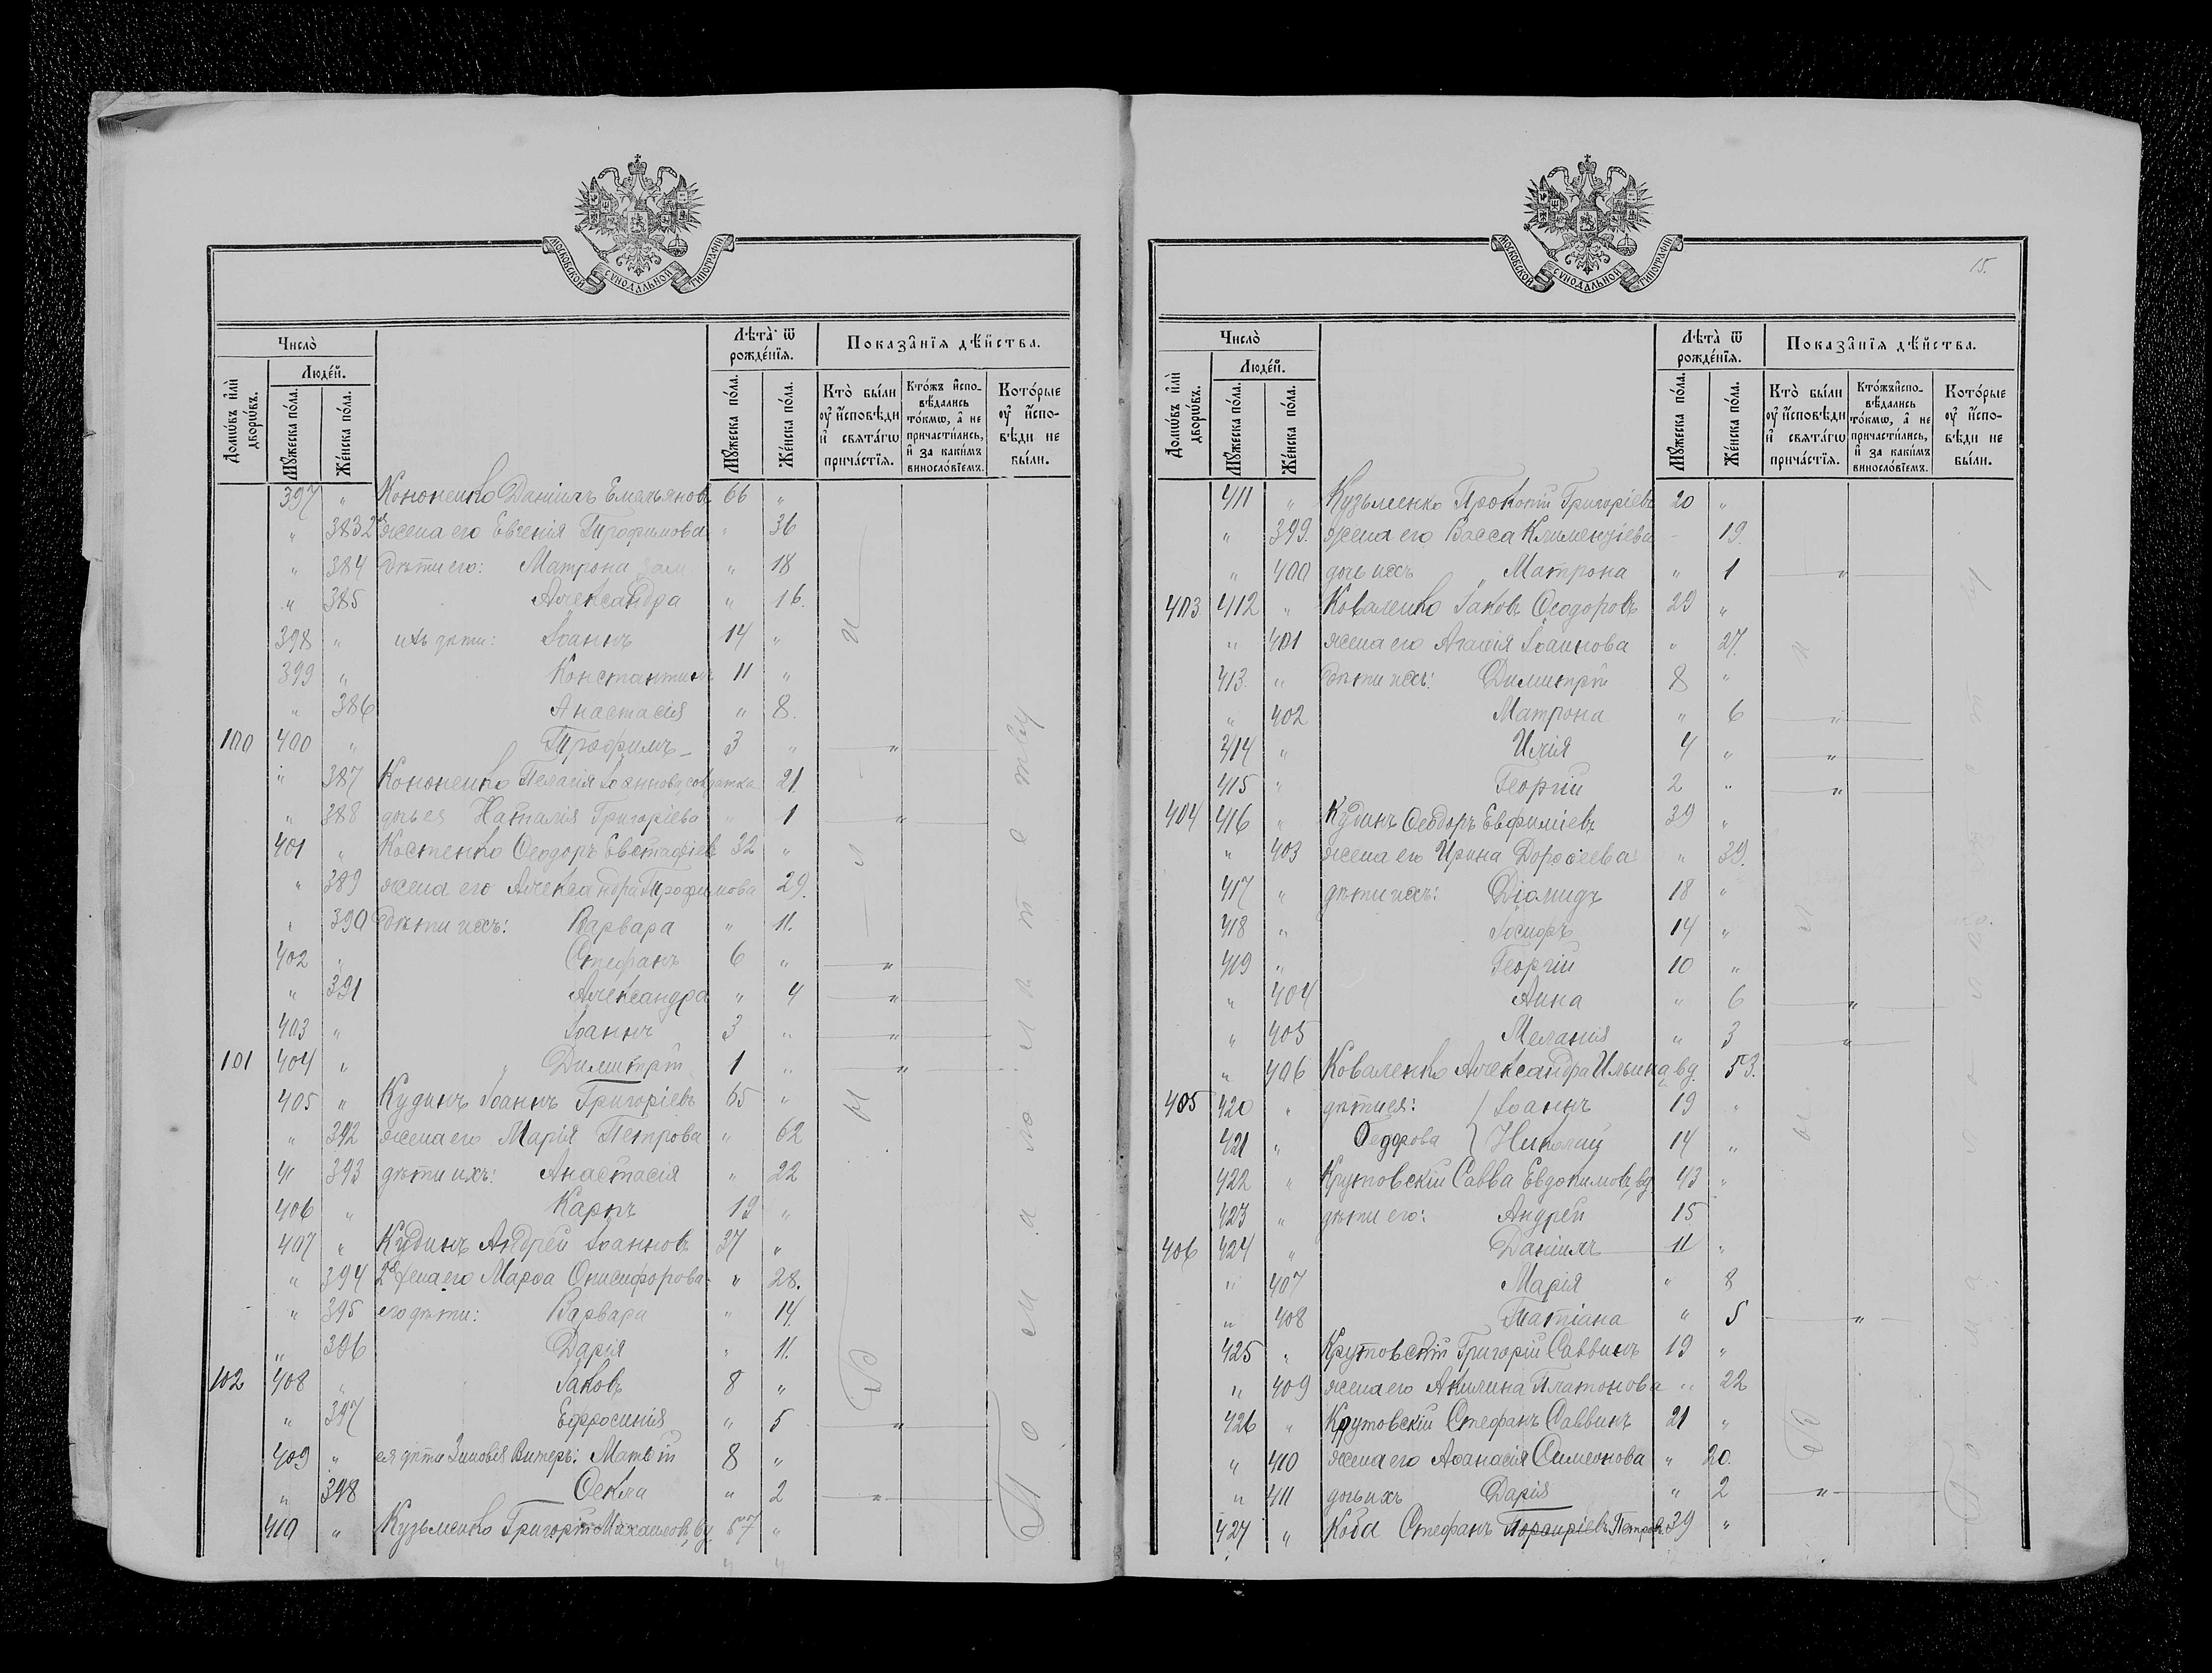 МОСКОВСКОЙ СѴНОДАЛЬНОЙ ТИПОГРАФІИ
Число̀
Людéй.
Домѡ́въ и҆лѝ дворѡ́въ.
Мꙋ́жеска по́ла.
Же́нска по́ла.
Лѣ́та ѿ рожде́нїѧ.
Мꙋ́жеска по́ла.
Же́нска по́ла.
Показа̂нїѧ дѣ́йства.
Кто̀ бы́ли ᲂу҆ и҆сповѣ́ди и҆ свѧта́гѡ прича́стїѧ.
Кто́жъ и҆сповѣ́дались то́кмѡ, а҆ не причасти́лись, и҆ за каки́мъ винослові́емъ.
Кото́рые ᲂу҆ и҆сповѣ́ди не бы́ли.
397 " Кононенко Даніилъ Емельяновъ 66 "
" 383 2я жена его Евгенія Трофимова " 36
" 384 дѣти его: Матрона " 18
" 385 Александра " 16.
398 " ихъ дѣти: Іоаннъ 14 "
399 " Константинъ 11 "
" 386 Анастасія " 8.
100 400 " Трофимъ 3 " "
" 387 Кононенко Пелагія Іоаннова, солдатка 21
" 388 дочь ея Наталія Григоріева " 1 "
401 " Костенко Ѳеодоръ Евстафіевъ 32 "
" 389 жена его Александра Трофимова 29.
" 390 дѣти ихъ: Варвара " 11.
402 " Стефанъ 6 " "
" 391 Александра " 4 "
403 " Іоаннъ 3 " "
101 404 " Димитрій 1 " "
405 " Кудинъ Іоаннъ Григоріевъ 65 "
" 392 жена его Марія Петрова " 62
" 393 дѣти ихъ: Анастасія " 22
406 " Карпъ 19 "
407 " Кудинъ Андрей Іоанновъ 37 "
" 394 2я жена его Марѳа Онисифорова " 28.
" 395 его дѣти: Варвара " 14
" 396 Дарія " 11.
102 408 " Іаковъ 8 "
" 397 Ефросинія " 5 "
409 " ея дѣти Зиновія Матвій 8 "
" 398 Ѳекла " 2 "
410 " Кузьменко Григорій Михаиловъ, вд. 57 "
15.
МОСКОВСКОЙ СѴНОДАЛЬНОЙ ТИПОГРАФІИ
Число̀
Людéй.
Домѡ́въ и҆лѝ дворѡ́въ.
Мꙋ́жеска по́ла.
Же́нска по́ла.
Лѣ́та ѿ рожде́нїѧ.
Мꙋ́жеска по́ла.
Же́нска по́ла.
Показа̂нїѧ дѣ́йства.
Кто̀ бы́ли ᲂу҆ и҆сповѣ́ди и҆ свѧта́гѡ прича́стїѧ.
Кто́жъ и҆сповѣ́дались то́кмѡ, а҆ не причасти́лись, и҆ за каки́мъ винослові́емъ.
Кото́рые ᲂу҆ и҆сповѣ́ди не бы́ли.
411 " Кузьменко Прокопій Григоріевъ 20 "
" 399. жена его Васса Климентіева 19.
" 400 дочь ихъ Матрона " 1 "
403 412 " Коваленко Іаковъ Ѳеодоровъ 29 "
" 401 жена его Агафія Іоаннова " 27.
413. " дѣти ихъ: Димитрій 8 "
" 402 Матрона " 6 "
414 " Илія 4 " "
415 " Георгій 2 " "
404 416 " Кудинъ Ѳеодоръ Евфиміевъ 39 "
" 403 жена его Ирина Дороѳеева " 39.
417 " дѣти ихъ: Діомидъ 18 "
418 " Іосифъ 14 "
419 " Георгій 10 "
" 404 Анна " 6 "
" 405 Меланія " 3 "
" 406 Коваленко Александра Ильина, вд. 53.
405 420 " дѣти ея: Іоаннъ 19 "
421 " Ѳедорова Николай 14 "
422 " Крутовскій Савва Евдокимовъ, вд. 43 "
423 " дѣти его: Андрей 15
406 424 " Даніилъ 11 "
" 407 Марія " 8
" 408 Татіана " 5 "
425 " Крутовскій Григорій Саввинъ 19 "
" 409 жена его Акилина Платонова " 22
426 " Крутовскій Стефанъ Саввинъ 21 "
" 410 жена его Аѳанасія Симеонова " 20.
" 411 дочь ихъ Дарія " 2 "
427 " Коба Стефанъ Порфиріевъ Петровъ 39 "